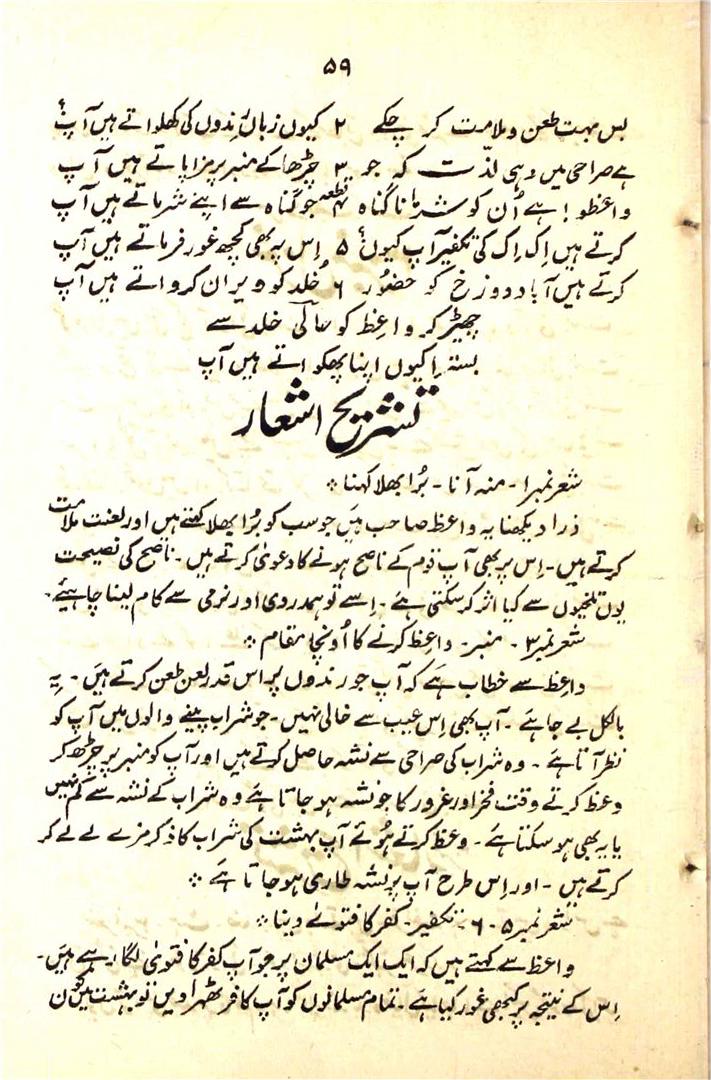 ۵۹
بس بہت طعن و ملامت کر چکے ۲ کیوں زباں رندوں کی کھلواتے ہیں آپ؟
ہے صراحی میں وہی لذّت کہ جو ۳ چڑھ کے منبر پر مزا پاتے ہیں آپ
واعظو! ہے اُن کو شرمانا گناہ ۴ قطعہ جو گناہ سے اپنے شرماتے ہیں آپ
کرتے ہیں اِک اِک کی تکفیر آپ کیوں؟ ۵ اِس پہ بھی کچھ غور فرماتے ہیں آپ
کرتے ہیں آباد دوزخ کو حضُور ۶ خُلد کو ویران کرواتے ہیں آپ
چھیڑ کر واعِظ کو حالی خلد سے
بسترا کیوں اپنا پھکواتے ہیں آپ
تشریح اشعار
شعر نمبر۱۔ منہ آنا۔ بُرا بھلا کہنا ؞
ذرا دیکھنا یہ واعظ صاحب ہیں جو سب کو بُرا بھلا کہتے ہیں اور لعنت ملامت
کرتے ہیں۔ اِس پر بھی آپ قوم کے ناصح ہونے کا دعویٰ کرتے ہیں۔ ناصح کی نصیحت
یوں تلخیوں سے کیا اثر کر سکتی ہے۔ اِسے تو ہمدردی اور نرمی سے کام لینا چاہیئے۔
شعر نمبر ۳۔ منبر۔ واعِظ کرنے کا اُونچا مقام ؞
واعِظ سے خطاب ہے کہ آپ جو رندوں پر اس قدر لعن طعن کرتے ہیں۔ یہ
بالکل بے جا ہے۔ آپ بھی اِس عیب سے خالی نہیں۔ جو شراب پینے والوں میں آپ کو
نظر آتا ہے۔ وہ شراب کی صراحی سے نشہ حاصل کرتے ہیں اور آپ کو منبر پر چڑھ کر
وعظ کرتے وقت فخر اور غرور کا جو نشہ ہو جاتا ہے وہ شراب کے نشہ سے کم نہیں
یا یہ بھی ہو سکتا ہے۔ وعظ کرتے ہُوئے آپ بہشت کی شراب کا ذکر مزے لے لے کر
کرتے ہیں۔ اور اِس طرح آپ پر نشہ طاری ہو جاتا ہے ؞
شعر نمبر ۵۔۶۔ تکفیر۔ کفر کا فتوےٰ دینا ؞
واعظ سے کہتے ہیں کہ ایک ایک مسلمان پر جو آپ کفر کا فتویٰ لگا رہے ہیں۔
اِس کے نتیجہ پر کبھی غور کیا ہے۔ تمام مسلمانوں کو آپ کافر ٹھہرا دیں تو بہشت میں کون